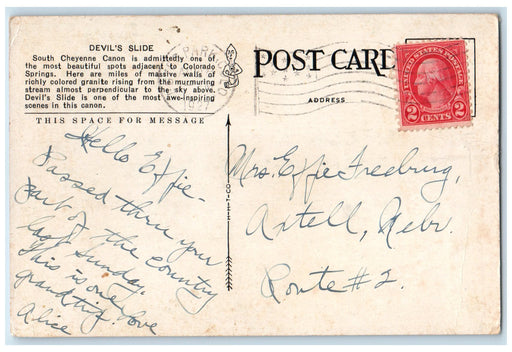 DEVIL'S SLIDE
South Cheyenne Canon is admittedly one of
the most beautiful spots adjacent to Colorado
Springs. Here are miles of massive walls of
richly colored granite rising from the murmuring
stream almost perpendicular to the sky above.
Devil's Slide is one of the most awe-inspiring
scenes in this canon.
THIS SPACE FOR MESSAGE
Hello Effie-
Passed thru your
part of the country
last Sunday.
This is one
grand trip. Love
Alice
PARK
1927
POST CARD
ADDRESS
UNITED STATES POSTAGE
2 CENTS 2
Mrs. Effie Freeburg,
Axtell, Nebr.
Route #2.